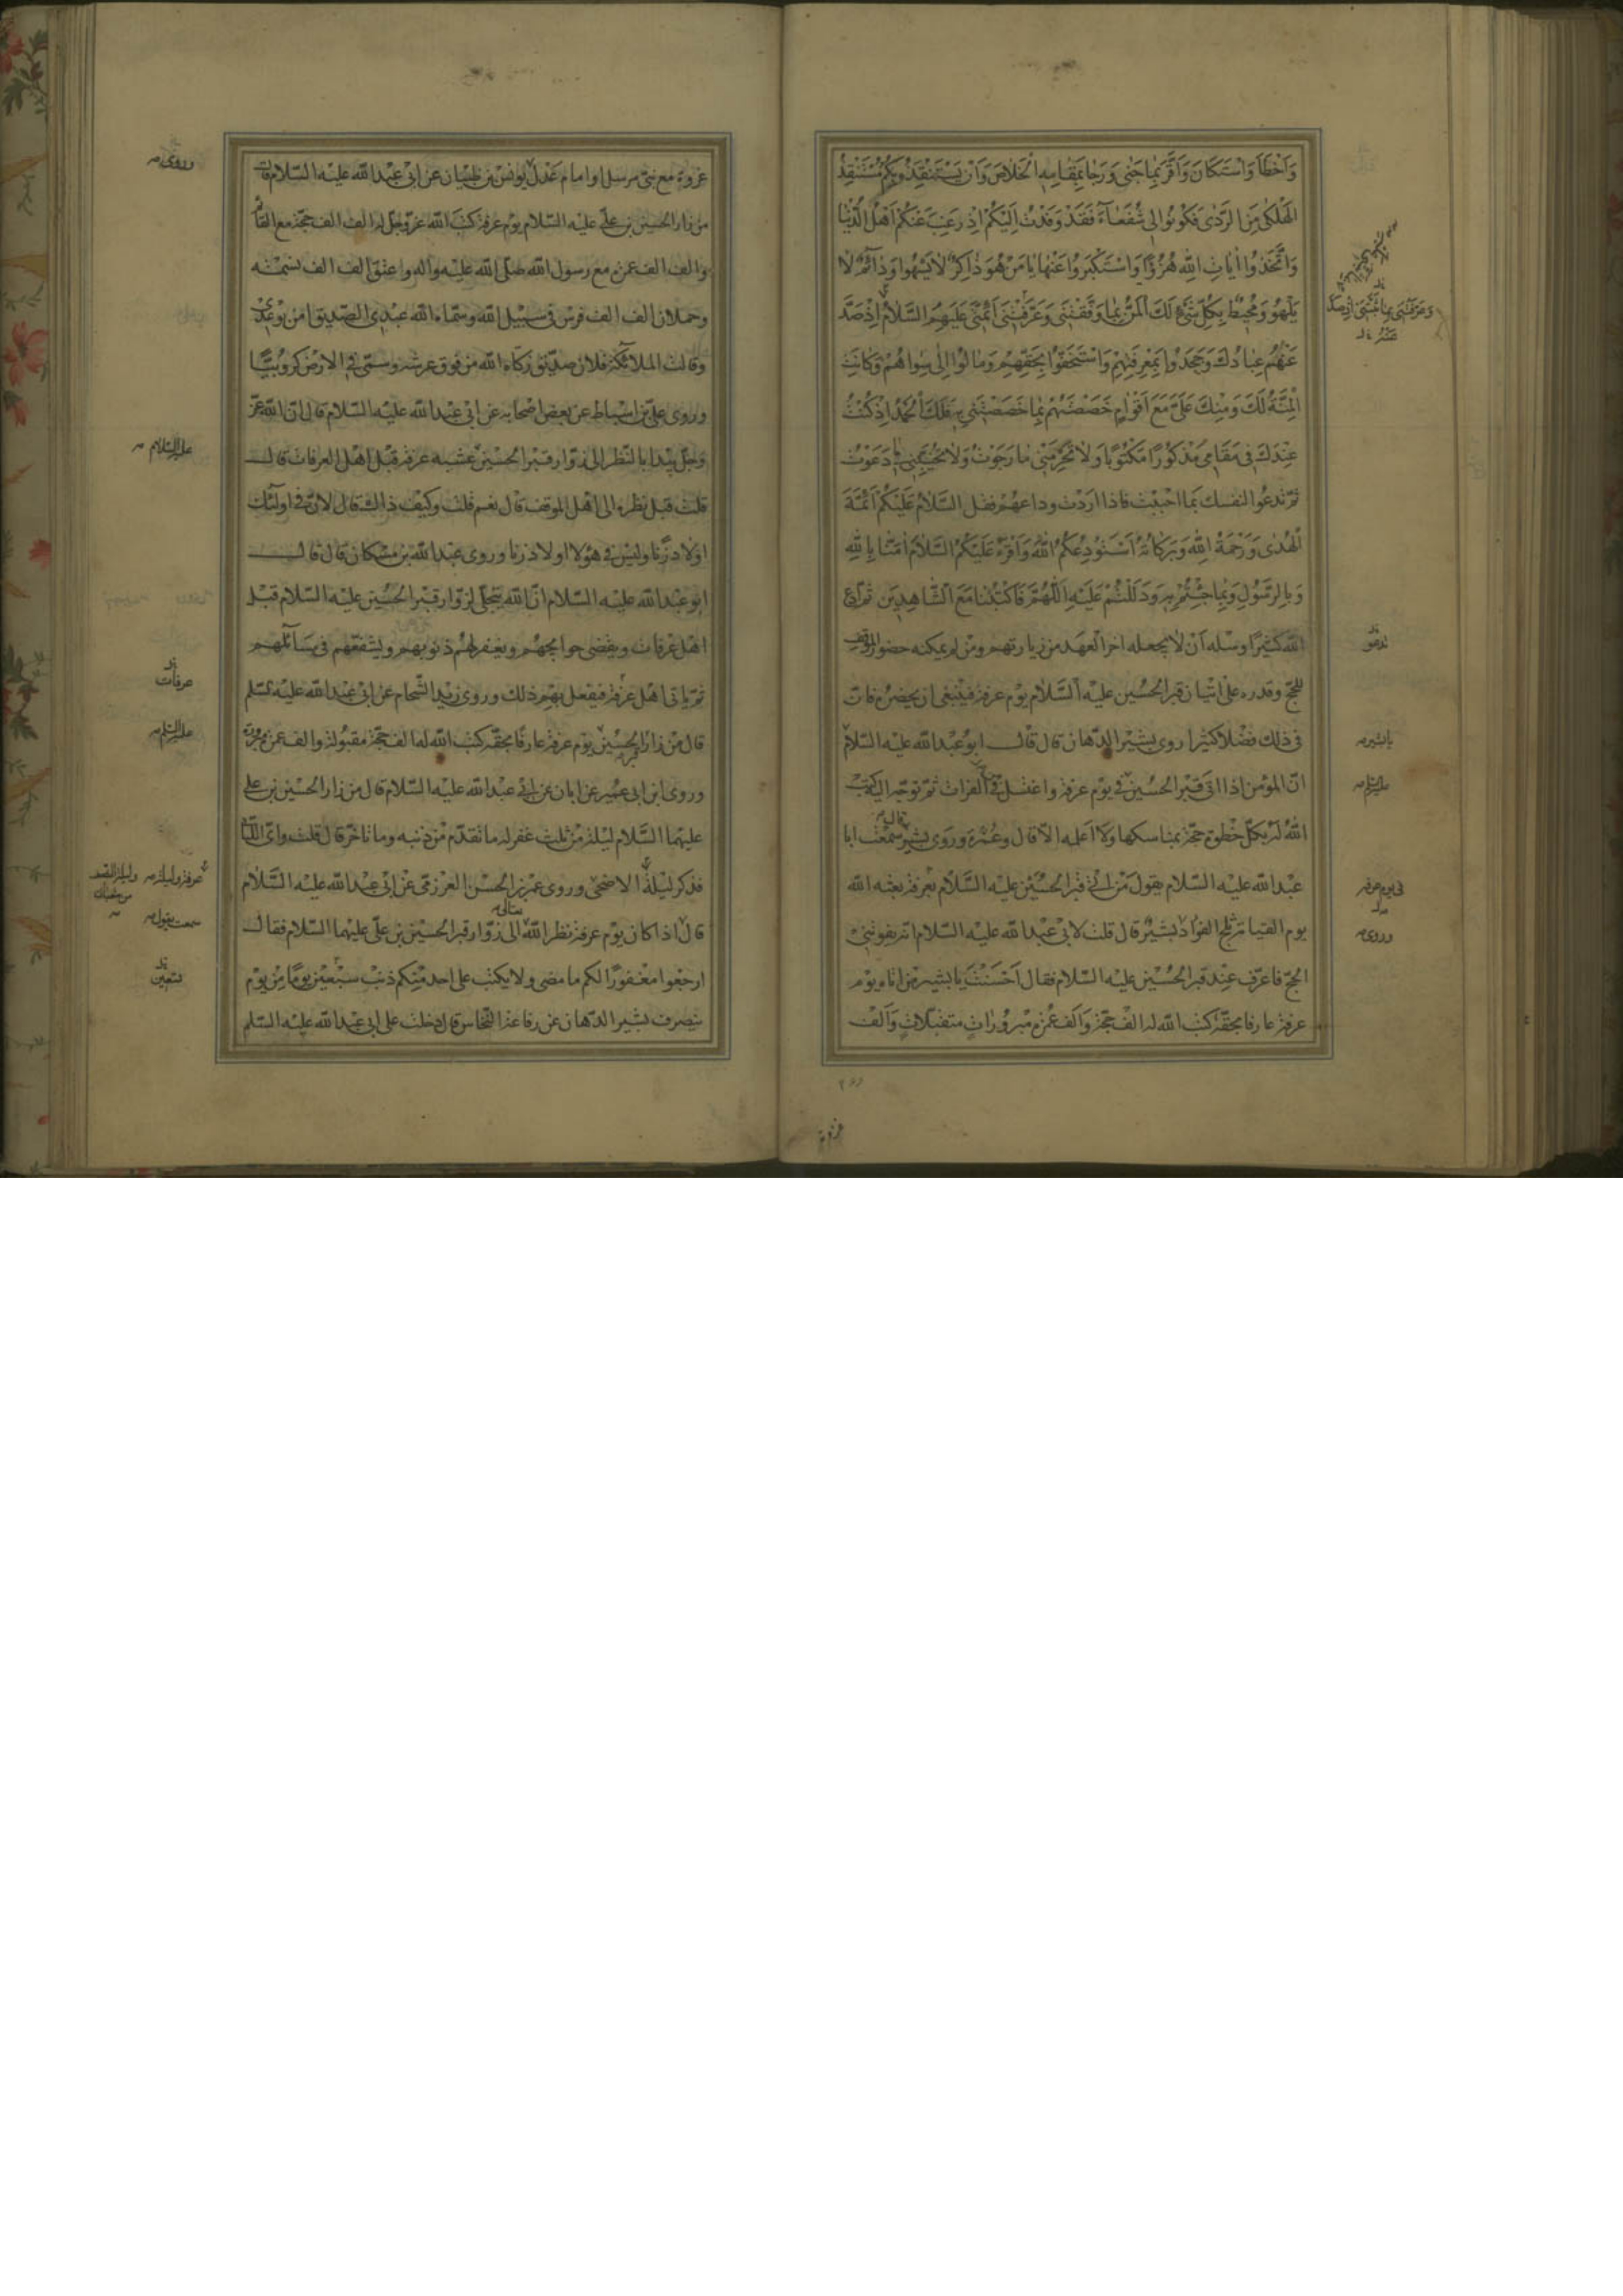 وَاَخْطَأَ وَاسْتَكَانَ وَاَقَرَّ بِمَا جَنٰى وَرَجَا بِمَقَامِهِ الْخَلَاصَ وَاَنْ يَسْتَنْقِذَهُ بِكُمْ مُسْتَنْقِذُ
الْهَلْكٰى مِنَ الرَّدٰى فَكُونُوا لِى شُفَعَآءَ فَقَدْ وَفَدْتُ اِلَيْكُمْ اِذ رَغِبَ عَنْكُمْ اَهْلُ الدُّنْيَا
وَاتَّخَذُوا اٰيَاتِ اللهِ هُزُوًا وَاسْتَكْبَرُوا عَنْهَا يَا مَنْ هُوَ ذَاكِرٌ لَا يَسْهُوا وَدَآئِمٌ لَا
يَلْهُوَ وَمُحِيطٌ بِكُلِّ شَىْءٍ لَكَ الْمَنُّ بِمَا وَفَّقْتَنِى وَعَرَّفْتَنِى اَئِمَّتِى عَلَيْهِمُ السَّلَامُ اِذْ صَدَّ
عَنْهُمْ عِبَادُكَ وَجَحَدُوا بِمَعْرِفَتِهِمْ وَاسْتَخَفُّوا بِحَقِّهِمْ وَمَالُوا اِلٰى سِوَاهُمْ وَكَانَتِ
الْمِنَّةُ لَكَ وَمِنْكَ عَلَىَّ مَعَ اَقْوَامٍ خَصَصْتَهُمْ بِمَا خَصَصْتَنِى بِهِ فَلَكَ الْحَمْدُ اِذْ كُنْتُ
عِنْدَكَ فِى مَقَامِى مَذْكُورًا مَكْتُوبًا وَلَا تَحْرِمْنِى مَا رَجَوْتُ وَلَا تُخَيِّبْنِى فِيمَا دَعَوْتُ
ثمّ تدعُوا لنفسك بما احببت فاذا اردت وداعهُم فقل السَّلَامُ عَلَيْكُمْ اَئِمَّةَ
الْهُدٰى وَرَحْمَةُ اللهِ وَبَرَكَاتُهُ اَسْتَوْدِعُكُمُ اللهَ وَاَقْرَءُ عَلَيْكُمُ السَّلَامَ اٰمَنَّا بِاللهِ
وَبِالرَّسُولِ وَبِمَا جِئْتُمْ بِهِ وَدَلَلْتُمْ عَلَيْهِ اَللّٰهُمَّ فَاكْتُبْنَا مَعَ الشَّاهِدِينَ ثم ادع
الله كثيرًا وسله اَنْ لا يجعله اخر العهد من زيارتهم ومن لم يمكنه حضور الموقف
للحجّ وقدر على اتيان قبر الحُسين عليه السَّلام يوم عرفة فينبغى ان يحضره فانّ
فى ذلك فضلا كثيرا روى بشير الدّهان قال قال ابو عبد الله عليه السّلام
انّ المؤمن اذا اتى قبر الحُسين فى يوم عرفة واغتسل فى الفرات ثمّ توجّه اليه كتب
اللهُ لَهُ بكلّ خطوة حجّة بمناسكها ولا اعلمه الّا قال وعُمْرَة وروى بشير قال سمعت ابا
عبد الله عليه السلام يقول من اتى قبر الحُسين عليه السَّلام بعرفة بعثه الله
يوم القيامة ثلج الفؤاد بشير قال قلت لابى عبد الله عليه السّلام انه يفوتنى
الحجّ فاعرّف عند قبر الحُسين عليه السّلام فقال اَحْسَنْتَ يا بشير من اتاه يوم
عرفة عارفا بحقّه كتب الله له الف حجّة وَالف عُمرة مبرورات متقبّلات وَالف
يا بشير
عليه السّلم
فى يوم عرفة
وروى
غزوة
غزوة مع نبىّ مرسل او امام عَدْل يونس بن ظبيان عن ابى عبد الله عليه السّلام قال
من زار الحسين بن علىّ عليه السّلام يوم عرفة كتب الله عزّ وجلّ له الف الف حجّة مع القائم
والف الف عمرة مع رسول الله صلّى الله عليه واله وعتق الف الف نسمة
وحملان الف الف فرس فى سبيل الله وسمّاه الله عبدى الصدّيق امن بوعدى
وقالت الملائكة فلان صدّيق زكّاه الله من فوق عرشه وسمّى فى الارض كروبيّا
وروى علىّ بن اسباط عن بعض اصحابه عن ابى عبد الله عليه السّلام قال انّ الله عزّ
وجلّ يبدا بالنّظر الى زوّار قبر الحُسين عشيّة عرفة قبل اهل العرفات قال
قلت قبل نظره الى اهل الموقف قال نعم قلت وكيف ذاك قال لانّ فى اولئك
اولاد زنا وليس فى هؤلاء اولاد زنا وروى عبد الله بن مسكان قال قال
ابو عبد الله عليه السّلام انّ الله يتجلّى لزوّار قبر الحُسين عليه السّلام قبل
اهل عرفات ويقضى حوايجهم ويغفر لهم ذنوبهم ويشفّعهم فى مسائلهم
ثمّ ياتى اهل عرفة فيفعل بهم ذلك وروى زيد الشّحام عن ابى عبد الله عليه السّلم
قال من زار الحسين يوم عرفة عارفا بحقّه كتب الله له الف حجّة مقبولة والف عمرة مبرورة
وروى ابن ابى عمير عن ابان عن ابى عبد الله عليه السّلام قال من زار الحُسين بن على
عليهما السَّلام ليلة من ثلث غفر له ما تقدّم من ذنبه وما تاخّر قال قلت واىّ الليالى
فذكر ليلة الاضحى وروى عبر بن الحسن العرزمى عن ابى عبد الله عليه السَّلام
قال اذا كان يوم عرفة نظر الله تعالى الى زوّار قبر الحسين بن علىّ عليهما السّلام فقال
ارجعوا مغفورًا لكم ما مضى ولا يكتب على احد منكم ذنب سبعين يومًا من يوم
ينصرف بشير الدّهان عن رفاعة النّخاس قال دخلت على ابى عبد الله عليه السّلم
وروى
عليه السّلام
عرفات
عليه السّلم
سمعت يقول
تسعين